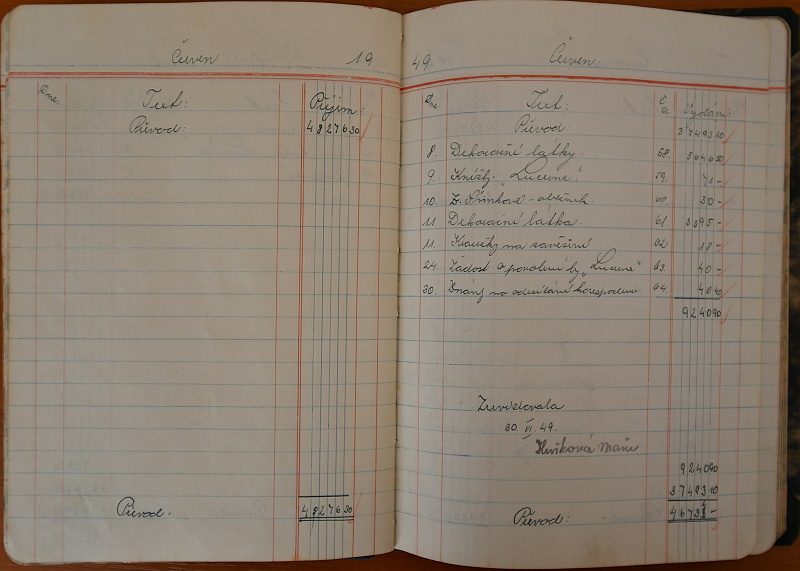 Červen 19
Dne: Text: Příjem:
Původ: 48276 30
Převod: 48276 30
49. Červen.
Dne Text: Č. úč. Vydání:
Původ: 37493 10
8. Dekorační látky 58. 5646 50
9 Knížky: "Lucerna" 59. 71 -
10. - občerstv. 60. 30 -
11. Dekorační látka. 61 3395 -
11. Kroužky na zavěšení 62. 18 -
24. Žádost o povolení hry "Lucerna" 63. 40 -
30. Známky na odesílání korespondence 64. 40 40
9240 90
Zrevidovala
30. VI. 49.
Marie
9240 90
37493 10
Převod: 4673 -